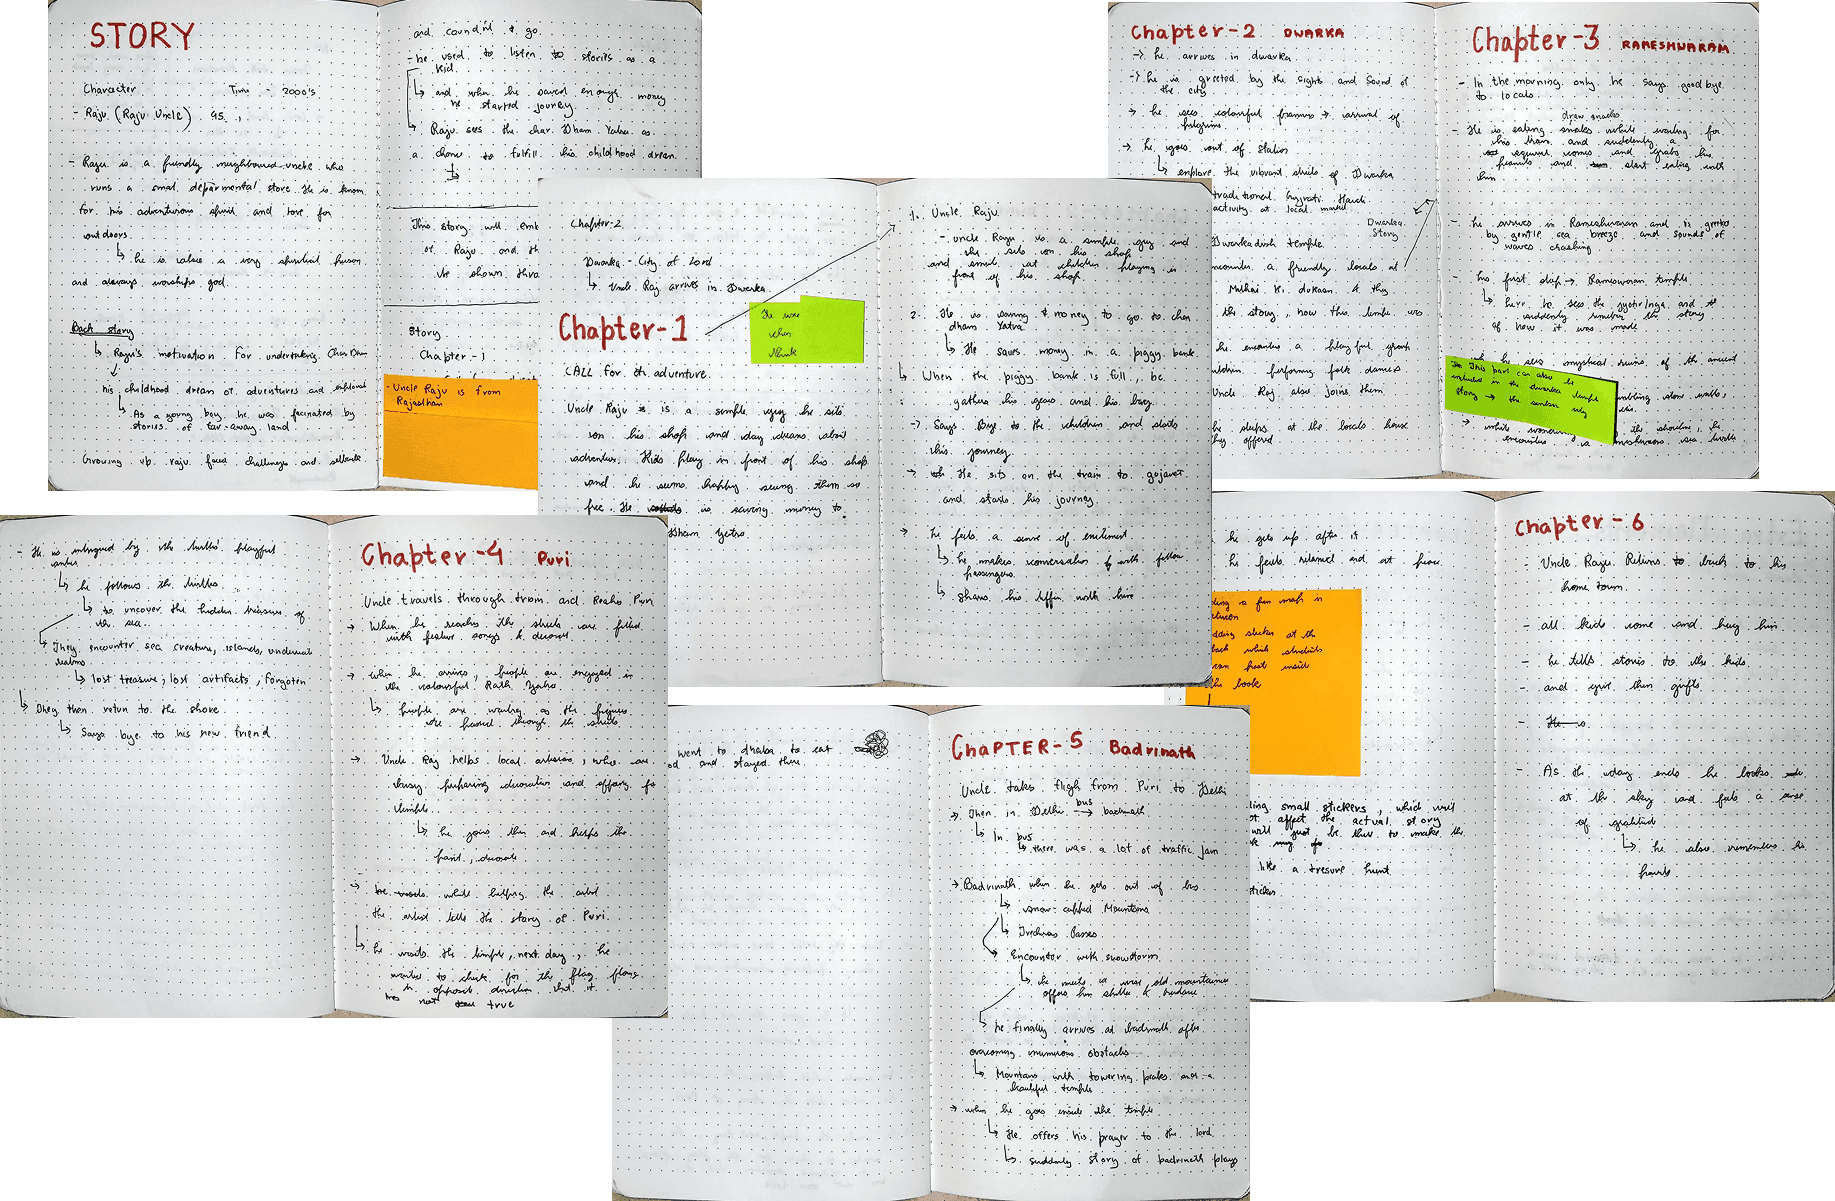 STORY
Character Time - 2000's
- Raju (Raju Uncle) 45.
- Raju is a friendly neighbourd uncle who
runs a small deparmental store. He is known
for his adventurous spirit and love for
outdoors.
he is also a very spiritual person
and always worships god.
Back story
Raju's motivation for undertaking Char Dham
his childhood dream of adventures and explored
As a young boy he was facinated by
stories of far-away land
Growing up raju faced challenges and
and couldn't go.
- he used to listen to stories as a
kid.
and when he saved enough money
he started jouney
Raju sees the char Dham Yatra as
a chance to fulfill his childhood dream.
This story will
of Raju and th
be shown thro
Story
Chapter - 1
- Uncle Raju is from
Rajasthan
Chapter-2
Dwarka - City of Lord
Uncle Raj arrives in Dwarka.
Chapter-1
He was
when
think
CALL for an adventure.
Uncle Raju is is a simple guy he sits
on his shop and day dreams about
adventure. Kids play in front of his shop
and he seems happy seeing them so
free. He is saving money to
Dham Yatra
1. Uncle Raju
- uncle Raju is a simple guy and
he sits on his shop
and smile at children playing in
front of his shop
2. He is saving money to go to char
dham Yatra
He saves money in a piggy bank
When the piggy bank is full, he
gathers his gears and his bag
-> Says Bye to the children and starts
his journey
-> He sits on the train to gujarat
and starts his journey.
-> he feels a sense of excitement
he makes conversation with fellow
passengers
shares his tiffin with him
Chapter-2 DWARKA
-> he arrives in dwarka
-> he is greeted by the sights and sound of
the city
-> he sees colourful frames -> arrival of
pilgrims
-> he goes out of station
explore the vibrant streets of Dwarka
traditional Gujrati Handi
activity at local market
Dwarka
Story
Dwarkadish temple.
ncounter a friendly locals at
Mithai ki dukaan & they
the story, how this temple was
he encounters a playful group
children performing folk dances
Uncle Raj also joins them
he sleeps at the locals house
they offered
Chapter-3 RAMESHWARAM
- In the morning only he says goodbye
to locals
draw snacks
- He is eating snaks while waiting for
his train and suddenly a
squirrel comes and grabs his
peanuts and start eating with
him
- he arrives in Rameshwaram and is greeted
by gentle sea breeze and sounds of
waves crashing
- his first step -> Rameswaram temple
here he sees the jyotirlinga and
suddenly the story
of how it was made
he sees mystical ruins of the ancient
This part can also be
included in the dwarka temple
story -> the sunken city
mbling stone walls,
the shoreline, he
encounters a sea turtle
- He is intrigued by the turtles playful
antics
he follows the turtles
to uncover the hidden treasure of
the sea.
They encounter sea creature, islands, undersea
realms
lost treasure, lost artifacts, forgoten
They then retun to the shore
Says bye to his new friend
Chapter-4 Puri
Uncle travels through train and Reahes Puri
-> When he reaches the streets are filled
with festive songs & decorat
-> when he arrives, people are engaged in
the colourful Rath Yatra.
people are waiting as the figures
are passed through the streets
-> Uncle Raj helps local artisians, who are
busy preparing decoration and offering for
temple
he joins them and helps the
paint, decorate
-> while helping the artist
the artist tells the story of Puri.
he visits the temple, next day, he
wanted to check for the flag flows
in opposit direction but it
was not true
went to dhaba to eat
od and stayed there.
CHAPTER-5 Badrinath
Uncle takes fligh from Puri to Delhi
-> Then in Delhi bus -> badrinath
In bus
there was a lot of traffic jam
-> Badrinath when he gets out of bus
snow-capped Mountains
Trechrous Passes
Encounter with snowstorm
he meets a wise old mountaineer
offers him shelter & guidance
he finally arrives at badrinath after
overcoming numerous obstacles
Mountains with towering peaks and a
beautiful temple
-> when he goes inside the temple
He offers his prayer to the lord
suddenly story of badrinath plays
he gets up after it
he feels relaxed and at peace
ding a fun mah in
dding sticker at the
back which students
can feat inside
the book
ling small stickers, which will
ot affect the actual story
will just be there to make the
like a tresure hunt
Chapter-6
- Uncle Raju Retuns to back to his
home town.
- all kids come and hug him
- he tells stories to the kids
- and give them gifts
- He is
- As the day ends he looks
at the sky and feels a sense
of gratitude
he also remembers his